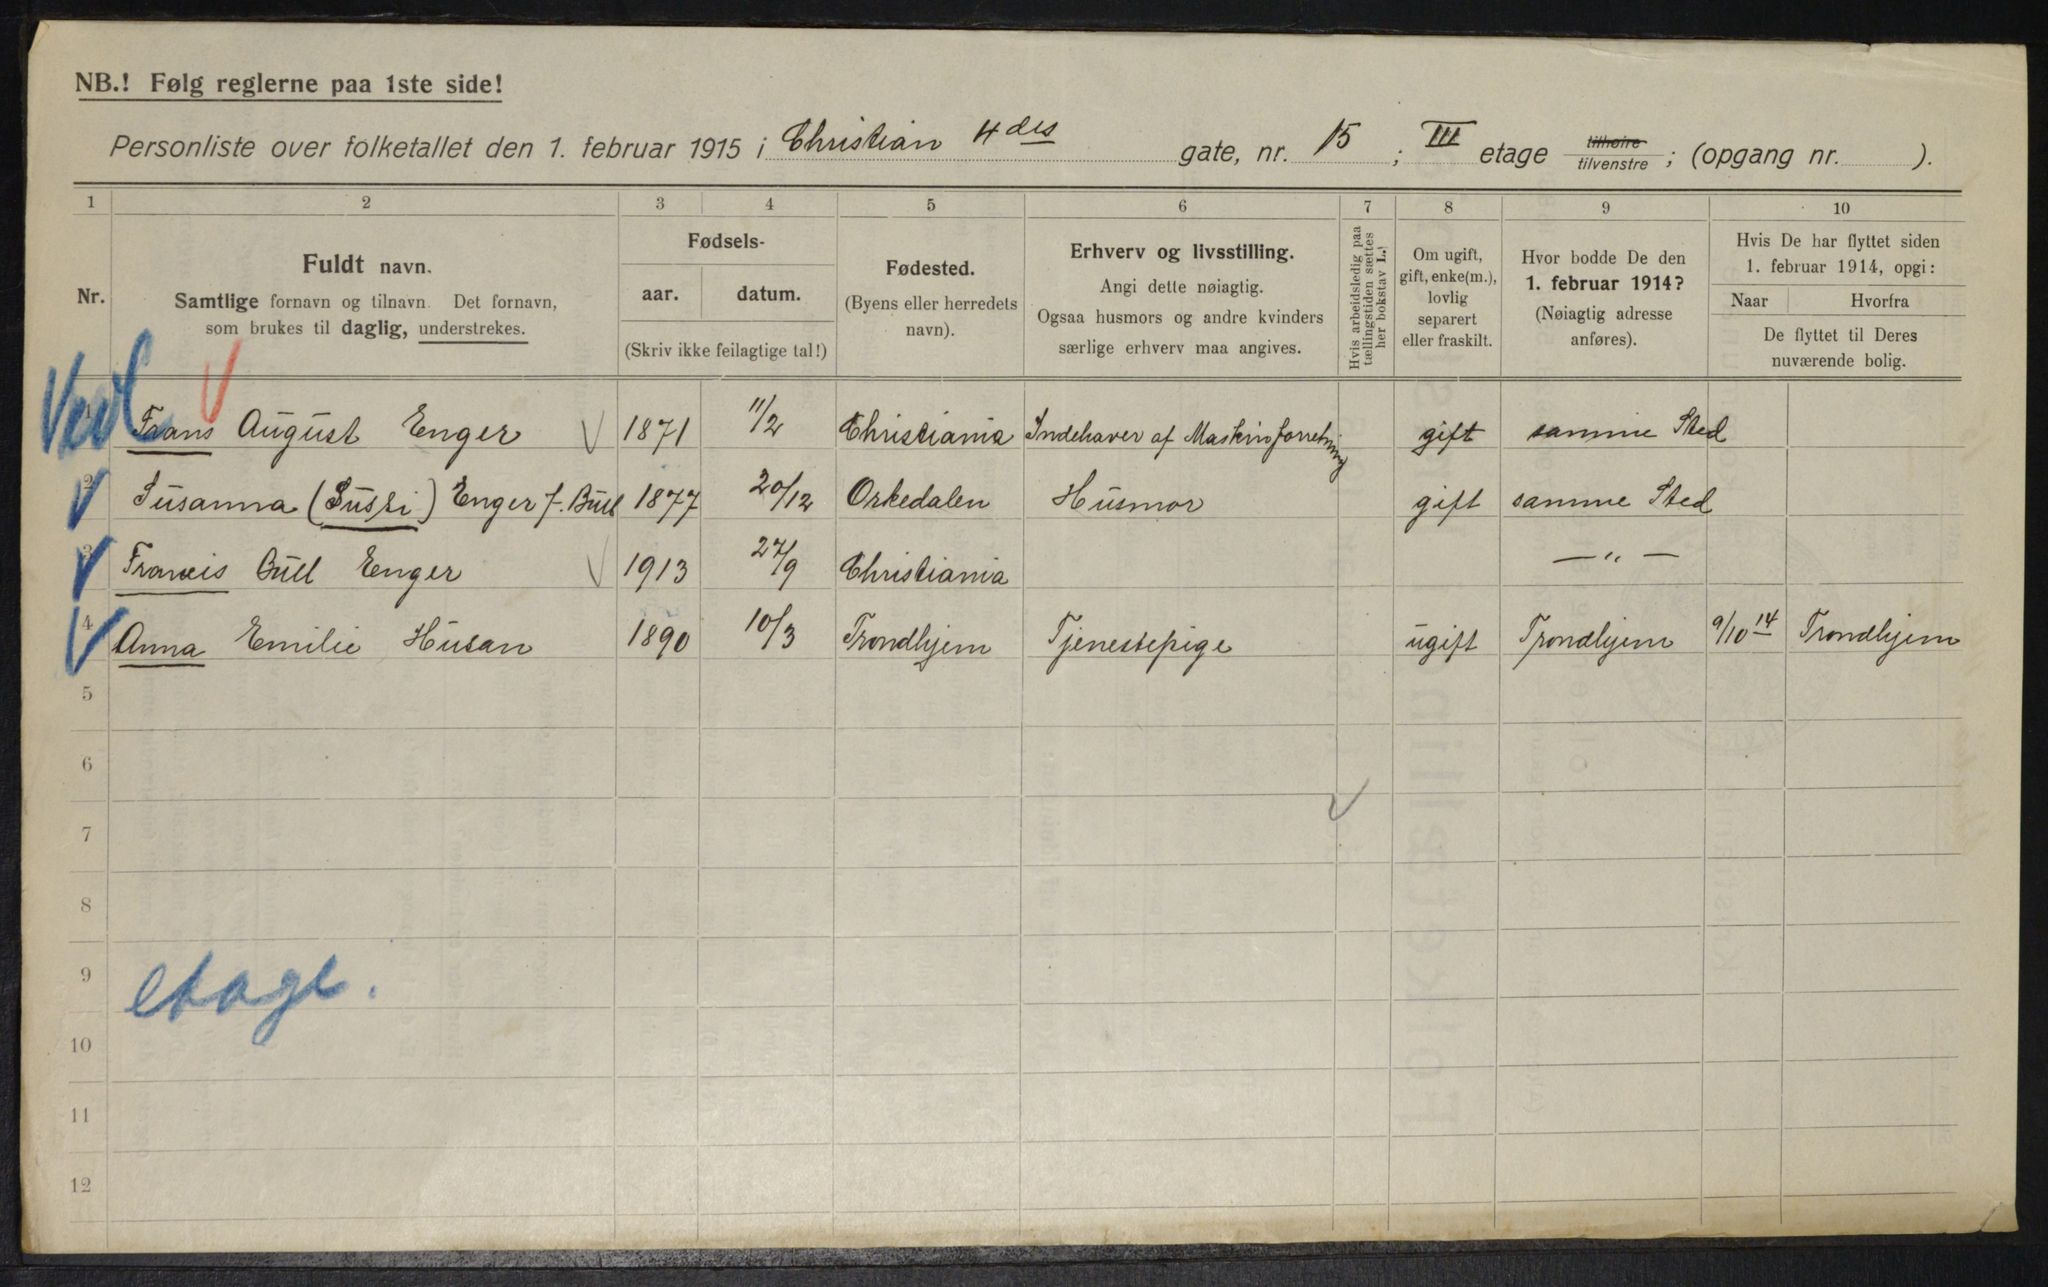 NB.! Følg reglerne paa 1ste side!
Personliste over folketallet den 1. februar 1915 i Christian 4des gate, nr. 15 ; III etage tilhøire tilvenstre ; (opgang nr. ).
1 2 3 4 5 6 7 8 9 10
Nr.
Fuldt navn.
Samtlige fornavn og tilnavn. Det fornavn,
som brukes til daglig, understrekes.
Fødsels-
aar. datum.
(Skriv ikke feilagtige tal!)
Fødested.
(Byens eller herredets
navn).
Erhverv og livsstilling.
Angi dette nøiagtig.
Ogsaa husmors og andre kvinders
særlige erhverv maa angives.
Hvis arbeidsledig paa
tællingstiden sættes
her bokstav L.!
Om ugift,
gift, enke(m.),
lovlig
separert
eller fraskilt.
Hvor bodde De den
1. februar 1914?
(Nøiagtig adresse
anføres).
Hvis De har flyttet siden
1. februar 1914, opgi:
Naar Hvorfra
De flyttet til Deres
nuværende bolig.
1 Frans August Enger 1871 11/2 Christiania Indehaver af Maskinforretning gift samme Sted
2 Susanna (Sussi) Enger f. Bull 1877 20/12 Orkedalen Husmor gift samme Sted
3 Francis Bull Enger 1913 27/9 Christiania — „ —
4 Anna Emilie Husan 1890 10/3 Trondhjem Tjenestepige ugift Trondhjem 9/10 14 Trondhjem
5
6
7
8
9
etage.
10
11
12